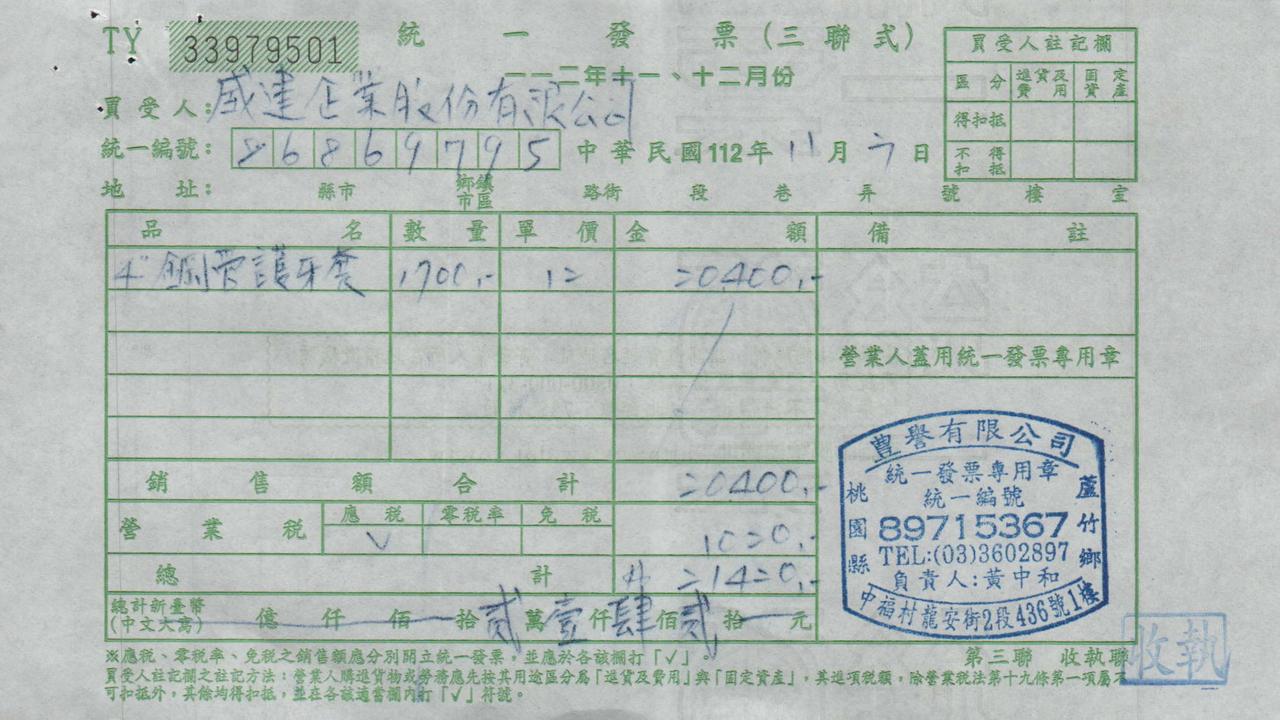 TY 33979501 統一發票(三聯式)
一一二年十一、十二月份
買受人註記欄
區分 進貨及費用 固定資產
得扣抵
不得扣抵
買受人: 威達企業股份有限公司
統一編號: 86869795 中華民國112年 11月 六日
地址: 縣市 鄉鎮市區 路街 段 巷 弄 號 樓 室
品名 數量 單價 金額 備註
4" 鋼管護牙套 1700,- 12 20,400,-
營業人蓋用統一發票專用章
銷售額合計 20400,-
營業稅 應稅 零稅率 免稅
V 1020,-
總計 21420,-
總計新臺幣(中文大寫) 億 仟 佰 拾 貳 萬 壹 仟 肆 佰 貳 拾 元
豊譽有限公司
統一發票專用章
統一編號
89715367
TEL:(03)3602897
負責人:黃中和
桃園縣 蘆竹鄉
中福村龍安街2段436號1樓
※應稅、零稅率、免稅之銷售額應分別開立統一發票,並應於各該欄打「✓」。
第三聯 收執聯
收執
買受人註記欄之註記方法:營業人購進貨物或勞務應先按其用途區分為「進貨及費用」與「固定資產」,其進項稅額,除營業稅法第十九條第一項屬不
可扣抵外,其餘均得扣抵,並在各該適當欄內打「✓」符號。